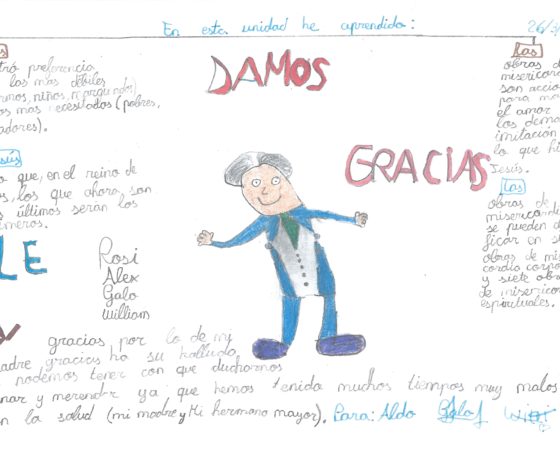 En esta unidad he aprendido:
26/
DAMOS
GRACIAS
preferencia
los más débiles
niños,
os mas necesitados (pobres,
adores).
sús
que, en el reino de
los que ahora son
últimos serán los
meros.
LE
Rosi
Alex
Galo
William
Las
obras d
misericor
son accio
para mo
el amor
los demá
imitación
lo que hi
Jesús.
Las
obras de
misericordi
se pueden d
ficar en s
obras de mis
cordia corpo
y siete obra
de misericor
espirituales.
gracias por lo de mi
adre gracias ha su
podemos tener con que ducharnos
nar y merendar ya que hemos tenido muchos tiempos muy malos
n la salud (mi madre y Mi hermano mayor). Para: Aldo